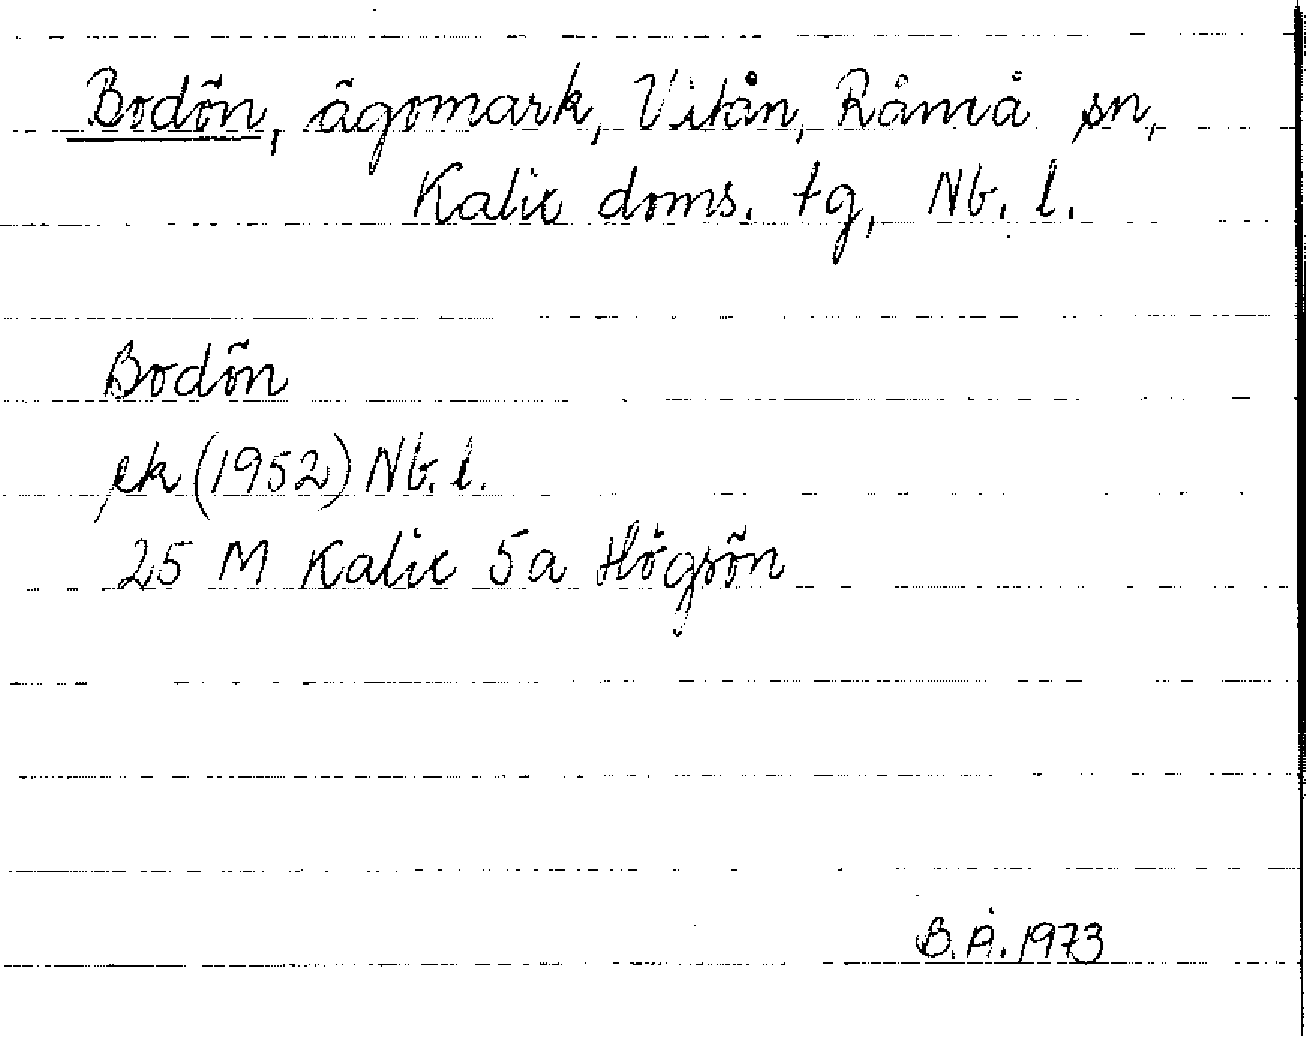 Bodön, ägomark, Vitån, Råneå sn,
Kalix doms. tg, Nb. l.
Bodön
ek (1952) Nb. l.
25 M Kalix 5a Högsön
B.Å. 1973